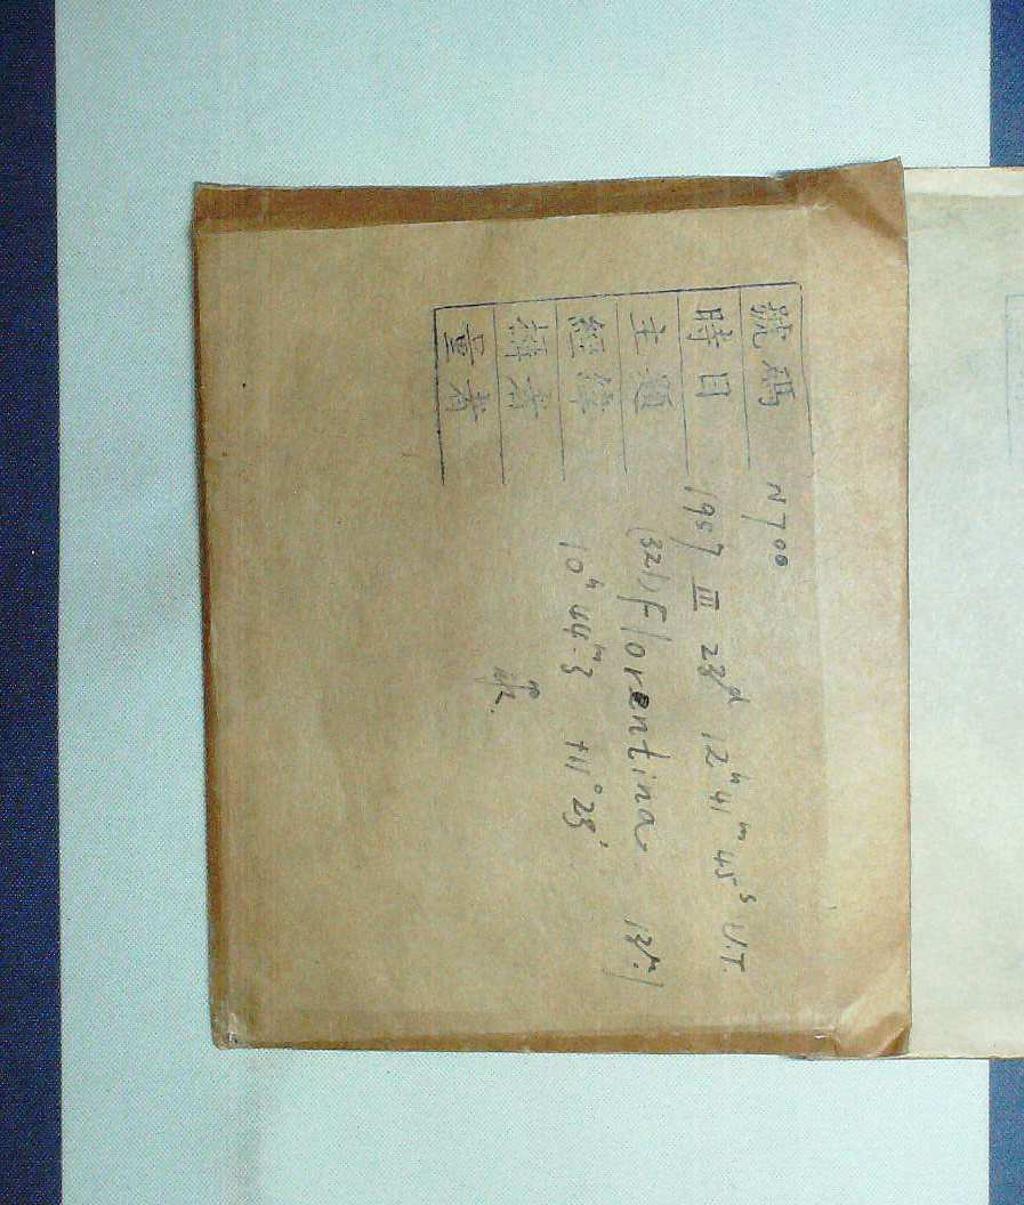 號碼 N700
時日 1957 III 23d 12h 41m 45s U.T.
主題 (321) Florentina 13m.1
經緯 10h 44m.3 +11° 23′
者
量者